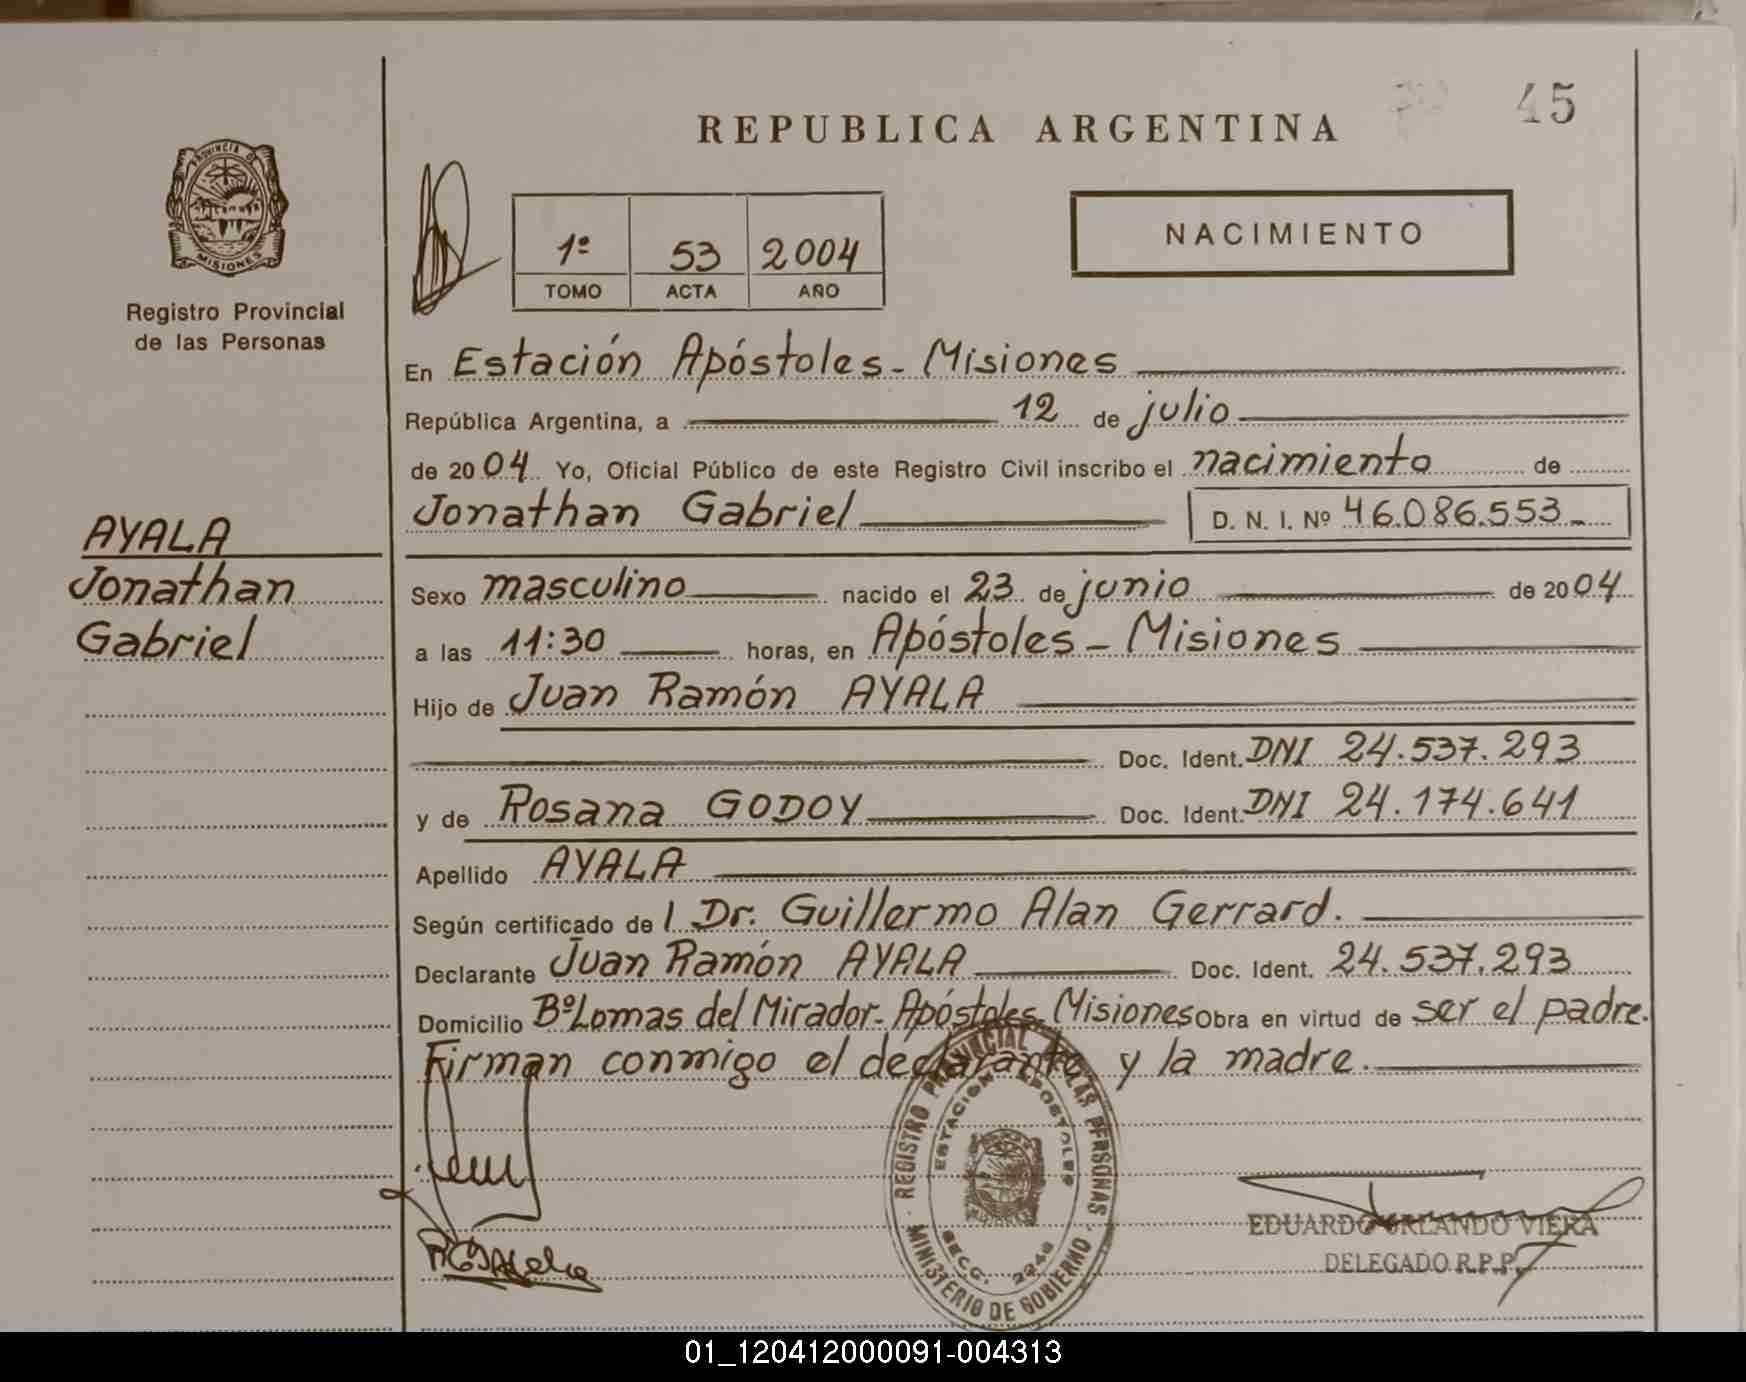 45
REPUBLICA ARGENTINA
PROVINCIA DE
MISIONES
Registro Provincial
de las Personas
1º 53 2004
TOMO ACTA AÑO
NACIMIENTO
En Estación Apóstoles - Misiones
República Argentina, a 12 de julio
de 2004 Yo, Oficial Público de este Registro Civil inscribo el nacimiento de
Jonathan Gabriel D. N. I. Nº 46.086.553-
AYALA
Jonathan
Gabriel
Sexo masculino nacido el 23 de junio de 2004
a las 11:30 horas, en Apóstoles - Misiones
Hijo de Juan Ramón AYALA
Doc. Ident. DNI 24.537.293
y de Rosana GODOY Doc. Ident. DNI 24.174.641
Apellido AYALA
Según certificado de l Dr. Guillermo Alan Gerrard.
Declarante Juan Ramón AYALA Doc. Ident. 24.537.293
Domicilio Bº Lomas del Mirador - Apóstoles - Misiones Obra en virtud de ser el padre.
Firman conmigo el declarante y la madre.
REGISTRO PROVINCIAL DE LAS PERSONAS
ESTACION APOSTOLES
SECC. 2940
MINISTERIO DE GOBIERNO
EDUARDO ORLANDO VIERA
DELEGADO R.P.P.
01_120412000091-004313